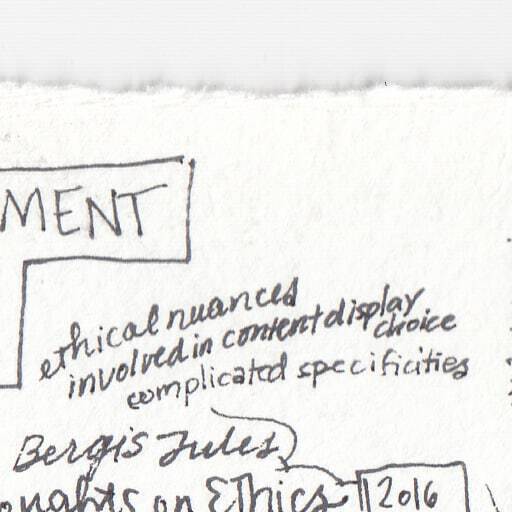 MENT
ethical nuances
involved in content display
choice
complicated specificities
Bergis Jules
oughts on Ethics
2016